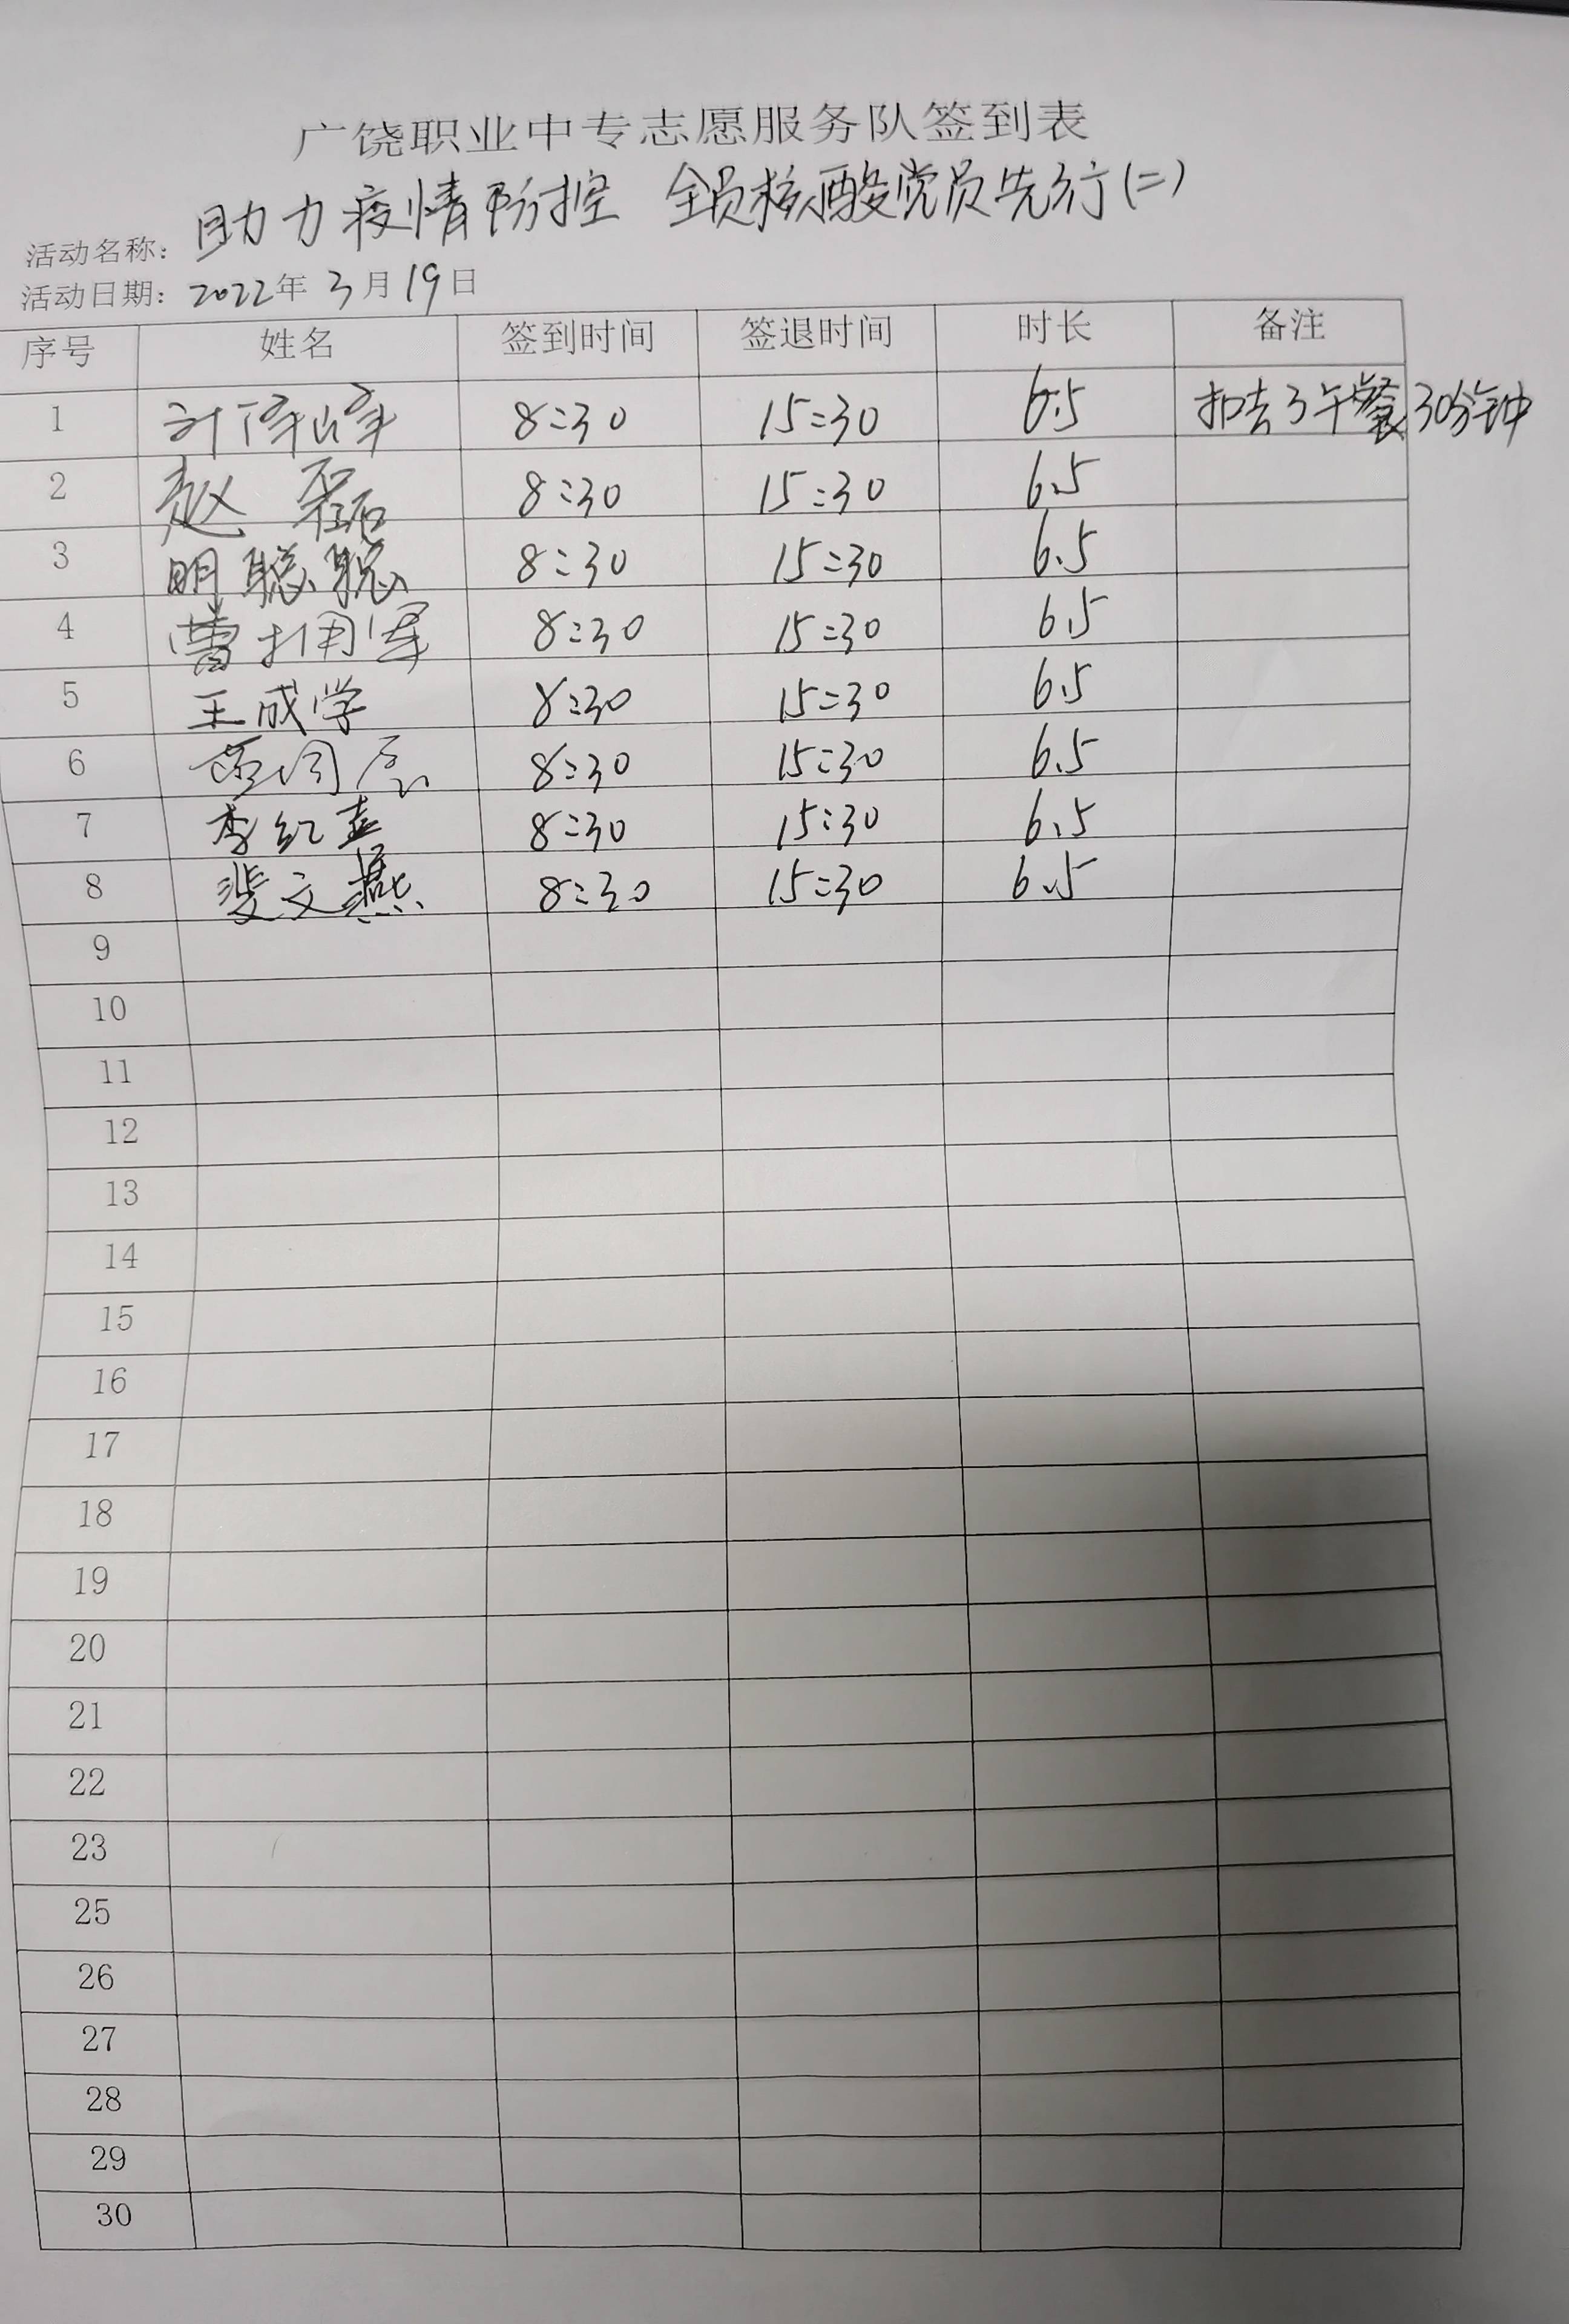 广饶职业中专志愿服务队签到表
活动名称：助力疫情防控 全员核酸党员先行(二)
活动日期：2022年3月19日
序号 姓名 签到时间 签退时间 时长 备注
1 8:30 15:30 6.5 扣去了午餐30分钟
2 赵磊 8:30 15:30 6.5
3 明聪聪 8:30 15:30 6.5
4 曹拥军 8:30 15:30 6.5
5 王成学 8:30 15:30 6.5
6 8:30 15:30 6.5
7 李红 8:30 15:30 6.5
8 文燕 8:30 15:30 6.5
9
10
11
12
13
14
15
16
17
18
19
20
21
22
23
25
26
27
28
29
30